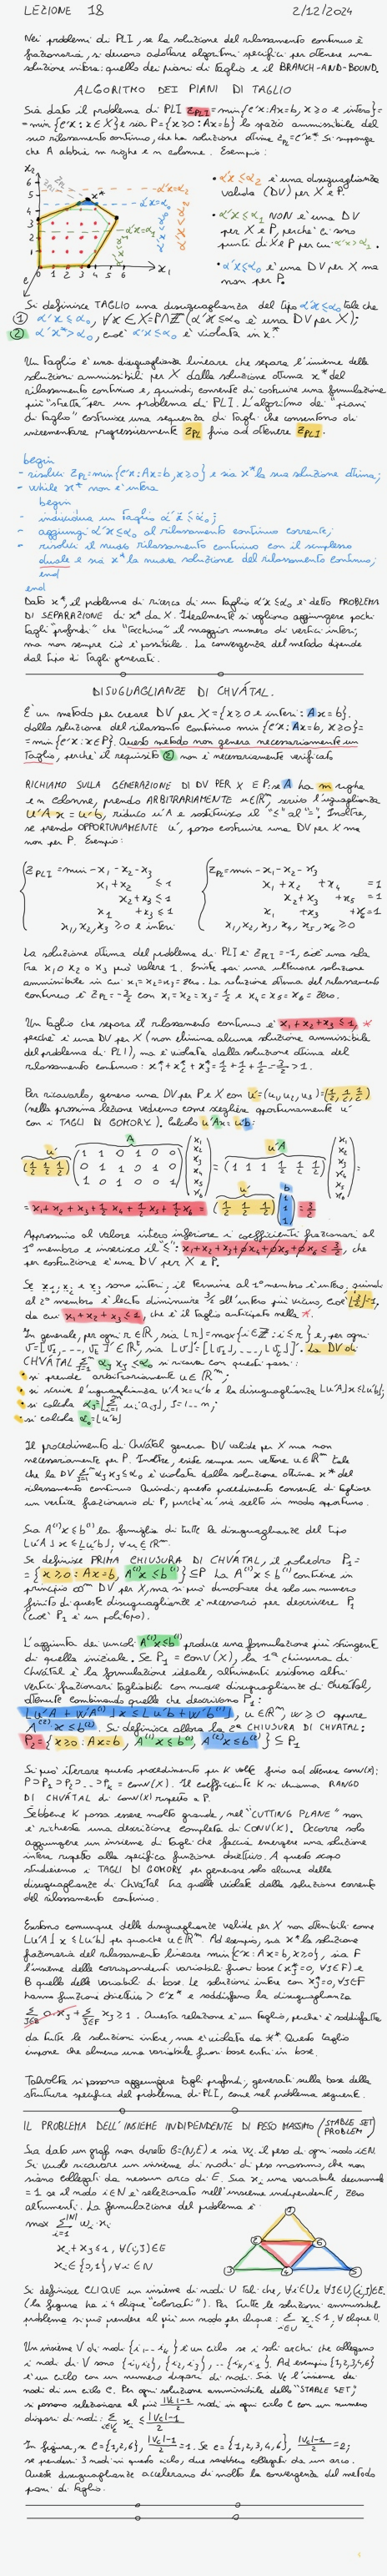 LEZIONE 18 2/12/2024
Nei problemi di PLI, se la soluzione del rilassamento continuo è
frazionaria, si devono adottare algoritmi specifici per ottenere una
soluzione intera: quello dei piani di taglio e il BRANCH-AND-BOUND.
ALGORITMO DEI PIANI DI TAGLIO
Sia dato il problema di PLI z_PLI = min{c'x: Ax=b, x≥0 e intero} =
= min{c'x: x∈X} e sia P={x≥0: Ax=b} lo spazio ammissibile del
suo rilassamento continuo, che ha soluzione ottima z_PL = c'x*. Si supponga
che A abbia m righe e n colonne. Esempio:
• α'x≤α₂ è una disuguaglianza
valida (DV) per X e P.
• α'x≤α₁ NON è una DV
per X e P, perché ci sono
punti di X e P per cui α'x>α₁.
• α'x≤α₀ è una DV per X ma
non per P.
Si definisce TAGLIO una disuguaglianza del tipo α'x≤α₀ tale che
① α'x≤α₀, ∀x∈X=P∩Z (α'x≤α₀ è una DV per X);
② α'x*>α₀, cioè α'x≤α₀ è violata in x*.
Un taglio è una disuguaglianza lineare che separa l'insieme delle
soluzioni ammissibili per X dalla soluzione ottima x* del
rilassamento continuo e, quindi, consente di costruire una formulazione
più "stretta" per un problema di PLI. L'algoritmo dei "piani
di taglio" costruisce una sequenza di tagli che consentono di
incrementare progressivamente z_PL fino ad ottenere z_PLI.
begin
- risolvi z_PL=min{c'x: Ax=b, x≥0} e sia x* la sua soluzione ottima;
- while x* non è intera
begin
- individua un taglio α'x≤α₀;
- aggiungi α'x≤α₀ al rilassamento continuo corrente;
- risolvi il nuovo rilassamento continuo con il simplesso
duale e sia x* la nuova soluzione del rilassamento continuo;
end
end
Dato x*, il problema di ricerca di un taglio α'x≤α₀ è detto PROBLEMA
DI SEPARAZIONE di x* da X. Idealmente si vogliono aggiungere pochi
tagli "profondi" che "tocchino" il maggior numero di vertici interi,
ma non sempre ciò è possibile. La convergenza del metodo dipende
dal tipo di tagli generati.
DISUGUAGLIANZE DI CHVÁTAL.
È un metodo per creare DV per X={x≥0 e interi: Ax=b}.
dalla soluzione del rilassamento continuo min {c'x: Ax=b, x≥0}=
=min{c'x: x∈P}. Questo metodo non genera necessariamente un
taglio, perché il requisito ② non è necessariamente verificato
RICHIAMO SULLA GENERAZIONE DI DV PER X E P: se A ha m righe
e n colonne, prendo ARBITRARIAMENTE u∈ℝᵐ, scrivo l'uguaglianza
u'Ax=u'b, riduco u'A e sostituisco il "≤" al "=". Inoltre,
se prendo OPPORTUNAMENTE u', posso costruire una DV per X ma
non per P. Esempio:
z_PLI = min -x₁-x₂-x₃ z_PL=min -x₁-x₂-x₃
x₁+x₂ ≤1 x₁+x₂ +x₄ =1
x₂+x₃ ≤1 x₂+x₃ +x₅ =1
x₁ +x₃ ≤1 x₁ +x₃ +x₆=1
x₁,x₂,x₃≥0 e interi x₁,x₂,x₃,x₄,x₅,x₆≥0
La soluzione ottima del problema di PLI è z_PLI=-1, cioè una sola
tra x₁ o x₂ o x₃ può valere 1. Esiste poi una ulteriore soluzione
ammissibile in cui x₁=x₂=x₃=zero. La soluzione ottima del rilassamento
continuo è z_PL=-3/2 con x₁=x₂=x₃=1/2 e x₄=x₅=x₆=zero.
Un taglio che separa il rilassamento continuo è x₁+x₂+x₃≤1, *
perché è una DV per X (non elimina alcuna soluzione ammissibile
del problema di PLI), ma è violata dalla soluzione ottima del
rilassamento continuo: x₁*+x₂*+x₃*=1/2+1/2+1/2=3/2>1.
Per ricavarlo, genero una DV per P e X con u'=(u₁,u₂,u₃)=(1/2 1/2 1/2)
(nella prossima lezione vedremo come scegliere opportunamente u'
con i TAGLI DI GOMORY). Calcolo u'Ax=u'b:
u' A u'A
(1/2 1/2 1/2) (1 1 0 1 0 0 / 0 1 1 0 1 0 / 1 0 1 0 0 1) (x₁ x₂ x₃ x₄ x₅ x₆) = (1 1 1 1/2 1/2 1/2) (x₁ x₂ x₃ x₄ x₅ x₆) =
= x₁+x₂+x₃+1/2x₄+1/2x₅+1/2x₆ = (1/2 1/2 1/2) (1 1 1) = 3/2
Approssimo al valore intero inferiore i coefficienti frazionari al
1° membro e inserisco il "≤": x₁+x₂+x₃+0x₄+0x₅+0x₆≤3/2, che
per costruzione è una DV per X e P.
Se x₁,x₂ e x₃ sono interi, il termine al 1° membro è intero, quindi
al 2° membro è lecito diminuire 3/2 all'intero più vicino, cioè ⌊3/2⌋=1,
da cui x₁+x₂+x₃≤1, che è il taglio anticipato nella *.
In generale, per ogni r∈ℝ, sia ⌊r⌋=max{i∈Z: i≤r} e, per ogni
v=[v₁,...,vₜ]'∈ℝᵗ, sia ⌊v⌋'=[⌊v₁⌋,...,⌊vₜ⌋]'. La DV di
CHVÁTAL Σαⱼxⱼ≤α₀ si ricava con questi passi:
• si prende arbitrariamente u∈ℝᵐ;
• si scrive l'uguaglianza u'Ax=u'b e la disuguaglianza ⌊u'A⌋x≤⌊u'b⌋;
• si calcola αⱼ=⌊Σuᵢaᵢⱼ⌋, j=1...n;
• si calcola α₀=⌊u'b⌋
Il procedimento di Chvátal genera DV valide per X ma non
necessariamente per P. Inoltre, esiste sempre un vettore u∈ℝᵐ tale
che la DV Σαⱼxⱼ≤α₀ è violata dalla soluzione ottima x* del
rilassamento continuo. Quindi, questo procedimento consente di tagliare
un vertice frazionario di P, perché u' sia scelto in modo opportuno.
Sia A⁽¹⁾x≤b⁽¹⁾ la famiglia di tutte le disuguaglianze del tipo
⌊u'A⌋x≤⌊u'b⌋, ∀u∈ℝᵐ.
Si definisce PRIMA CHIUSURA DI CHVÁTAL, il poliedro P₁=
={x≥0: Ax=b, A⁽¹⁾x≤b⁽¹⁾}⊆P. La A⁽¹⁾x≤b⁽¹⁾ contiene in
principio ∞ᵐ DV per X, ma si può dimostrare che solo un numero
finito di queste disuguaglianze è necessario per descrivere P₁
(cioè P₁ è un politopo).
L'aggiunta dei vincoli A⁽¹⁾x≤b⁽¹⁾ produce una formulazione più stringente
di quella iniziale. Se P₁=conv(X), la 1ᵃ chiusura di
Chvátal è la formulazione ideale, altrimenti esistono altri
vertici frazionari tagliabili con nuove disuguaglianze di Chvátal,
ottenute combinando quelle che descrivono P₁:
⌊u'A+w'A⁽¹⁾⌋x≤⌊u'b+w'b⁽¹⁾⌋, u∈ℝᵐ, w≥0 oppure
A⁽²⁾x≤b⁽²⁾. Si definisce allora la 2ᵃ CHIUSURA DI CHVÁTAL:
P₂={x≥0: Ax=b, A⁽¹⁾x≤b⁽¹⁾, A⁽²⁾x≤b⁽²⁾}⊆P₁
Si può iterare questo procedimento per K volte fino ad ottenere conv(X):
P⊃P₁⊃P₂⊃...⊃Pₖ=conv(X). Il coefficiente K si chiama RANGO
DI CHVÁTAL di conv(X) rispetto a P.
Sebbene K possa essere molto grande, nel "CUTTING PLANE" non
è richiesta una descrizione completa di CONV(X). Occorre solo
aggiungere un insieme di tagli che faccia emergere una soluzione
intera rispetto alla specifica funzione obiettivo. A questo scopo
studieremo i TAGLI DI GOMORY per generare solo alcune delle
disuguaglianze di Chvátal tra quelle violate dalla soluzione corrente
del rilassamento continuo.
Esistono comunque delle disuguaglianze valide per X non ottenibili come
⌊u'A⌋x≤⌊u'b⌋ per qualche u∈ℝᵐ. Ad esempio, sia x* la soluzione
frazionaria del rilassamento lineare min{c'x: Ax=b, x≥0}, sia F
l'insieme delle corrispondenti variabili fuori base (xⱼ*=0, ∀j∈F) e
B quelle delle variabili di base. Le soluzioni intere con xⱼ*=0, ∀j∈F
hanno funzione obiettivo > c'x* e soddisfano la disuguaglianza
Σ0·xⱼ+Σxⱼ≥1. Questa relazione è un taglio, perché è soddisfatta
da tutte le soluzioni intere, ma è violata da x*. Questo taglio
impone che almeno una variabile fuori base entri in base.
Talvolta si possono aggiungere tagli profondi, generati sulla base della
struttura specifica del problema di PLI, come nel problema seguente.
IL PROBLEMA DELL'INSIEME INDIPENDENTE DI PESO MASSIMO (STABLE SET PROBLEM)
Sia dato un graf non diretto G=(N,E) e sia wᵢ il peso di ogni nodo i∈N.
Si vuole ricavare un insieme di nodi di peso massimo, che non
siano collegati da nessun arco di E. Sia xᵢ una variabile decisionale
=1 se il nodo i∈N è selezionato nell'insieme indipendente, zero
altrimenti. La formulazione del problema è:
max Σwᵢxᵢ
xᵢ+xⱼ≤1, ∀(i,j)∈E
xᵢ∈{0,1}, ∀i∈N
Si definisce CLIQUE un insieme di nodi U tali che, ∀i∈U e ∀j∈U, (i,j)∈E.
(la figura ha i 4 clique "colorati"). Per tutte le soluzioni ammissibili
problema si può prendere al più un nodo per clique: Σxᵢ≤1, ∀ clique U.
Un insieme V di nodi {i₁...iₖ} è un ciclo se i soli archi che collegano
i nodi di V sono {i₁,i₂}, {i₂,i₃},...{iₖ,i₁}. Ad esempio {1,2,3,4,6}
è un ciclo con un numero dispari di nodi. Sia Vc l'insieme dei
nodi di un ciclo C. Per ogni soluzione ammissibile dello "STABLE SET",
si possono selezionare al più (|Vc|-1)/2 nodi in ogni ciclo C con un numero
dispari di nodi: Σxᵢ≤(|Vc|-1)/2
In figura, se C={1,2,6}, (|Vc|-1)/2=1. Se C={1,2,3,4,6}, (|Vc|-1)/2=2;
se prendessi 3 nodi in questo ciclo, due sarebbero collegati da un arco.
Queste disuguaglianze accelerano di molto la convergenza del metodo
piani di taglio.